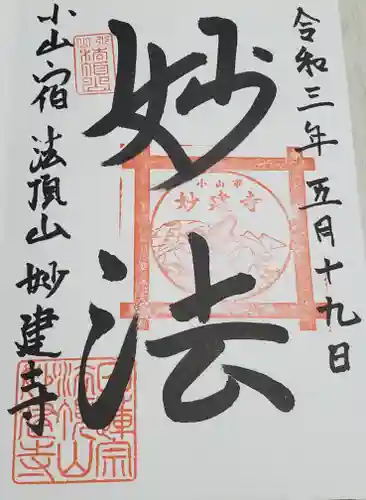 令和三年五月十九日
妙法
小山市
妙建寺
小山宿 法頂山 妙建寺
日蓮宗
法頂山
妙建寺